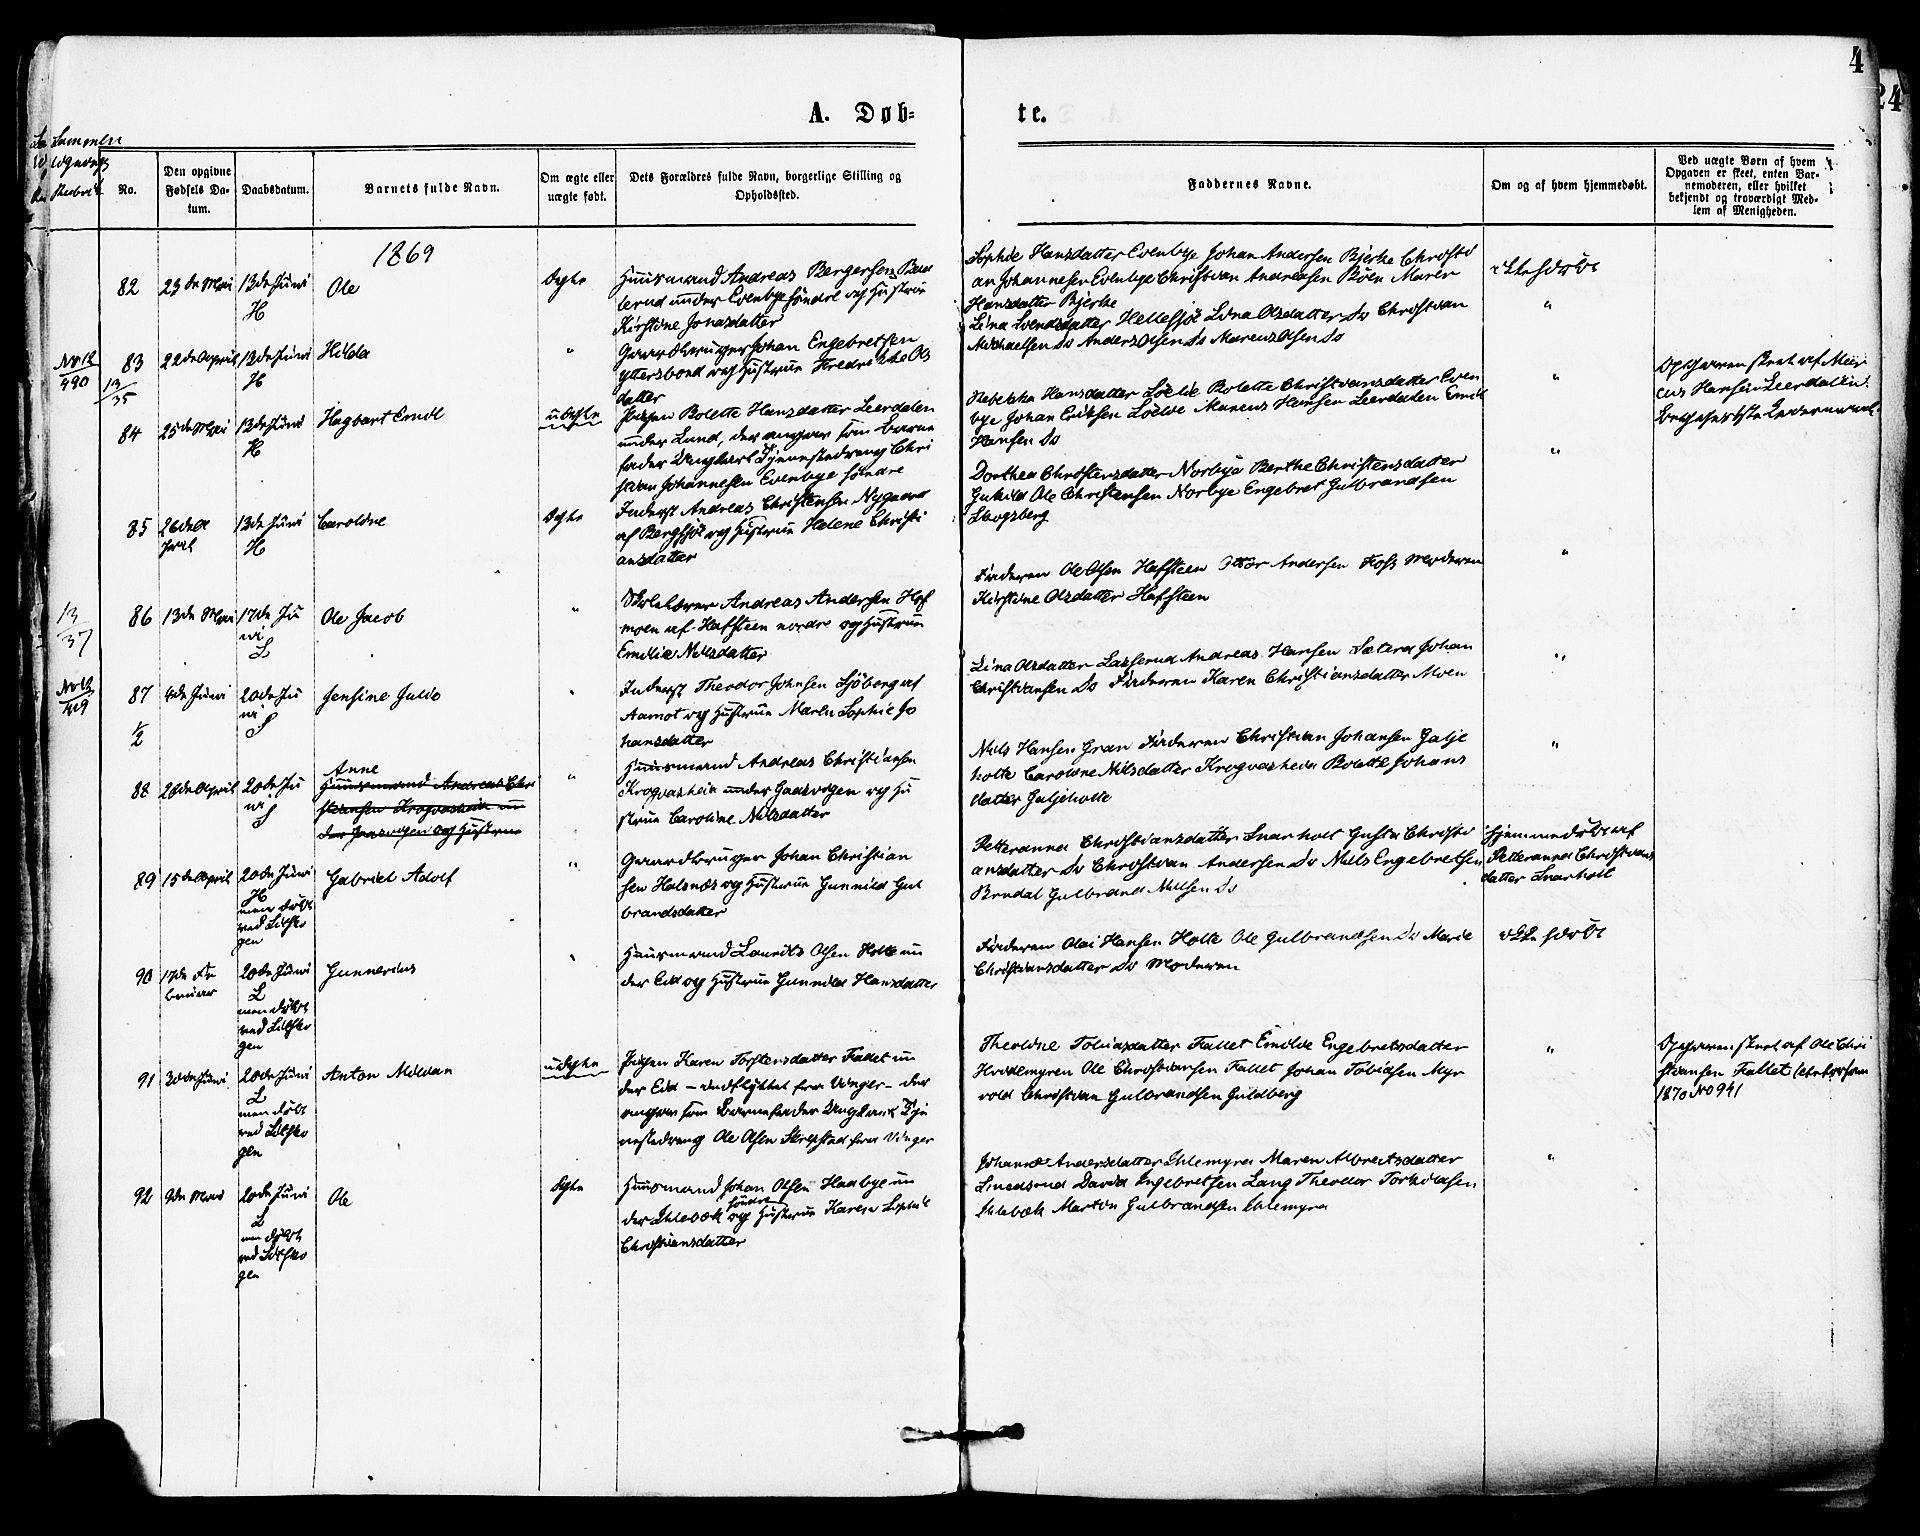 4
24
A. Døb-
te.
No.
Den opgivne
Fødsels Da-
tum.
Daabsdatum.
Barnets fulde Navn.
Om ægte eller
uægte født.
Dets Forældres fulde Navn, borgerlige Stilling og
Opholdssted.
Faddernes Navne.
Om og af hvem hjemmedøbt.
Ved uægte Børn af hvem
Opgaven er skeet, enten Bar-
nemoderen, eller hvilket
bekjendt og troværdigt Med-
lem af Menigheden.
1869
82
23de Mai
13de Juni
H
Ole
Ægte
Huusmand Andreas Bergersen
under Evenbye søndre og Hustrue
Kirstine Jonasdatter
Sophie Hansdatter Evenbye Johan Andersen Bjerke Christi
an Johannesen Evenbye Christian Andreasen Böen Maren
Hansdatter Bjerke
ikke døbt
83
22de April
13de Juni
H
Hilda
"
Gaardbruger Johan Engebretsen
Yttersbond og Hustrue Fredrikke Ols
datter
Lina Svendsdatter Hellesjöe Lina Olsdatter Do Christian
Michaelsen Do Anders Olsen Do Marens Olsen Do
"
490
13/35
84
25de Mai
13de Juni
H
Hagbart Emil
uægte
Pigen Bolette Hansdatter Leerdalen
under Lund, der angiver som Barne
fader Ungkarl Tjenestedreng Chri
stian Johannesen Evenbye søndre
Rebekka Hansdatter Bolette Christiansdatter Even
bye Johan Eriksen Marcus Hansen Leerdalen Emil
Hansen Do
"
Opgaven skeet af Mar
cus Hansen Leerdalen
85
26de A
pril
13de Juni
H
Caroline
Ægte
Inderst Andreas Christensen Nygaard
af Bergsjöe og Hustrue Helene Christi
ansdatter
Dorthea Christensdatter Norbye Berthe Christensdatter
Ole Christensen Norbye Engebret Gulbrandsen
Skogsberg
"
13/37
86
13de Mai
17de Ju
ni
L
Ole Jacob
"
Andreas Andersen Hof
moen af Hafsteen nordre og Hustrue
Emilie Nilsdatter
Faderen Ole Olsen Hafsteen Andersen Foss Moderen
Kirstine Olsdatter Hafsteen
"
87
1/2
4de Juni
20de Ju
ni
S
Jensine Julie
"
Inderst Theodor Johnsen Sjöberg af
Aamot og Hustrue Maren Sophie Jo
hansdatter
Lina Olsdatter Lasserud Andreas Hansen Sætera Johan
Christiansen Do Faderen Karen Christiansdatter Moen
"
88
28de April
20de Ju
ni
S
Anne
Huusmand Andreas Chri
stiansen Krogvasheia un
der Gaasvogen og Hustrue
"
Huusmand Andreas Christiansen
Krogvasheia under Gaasvogen og Hu
strue Caroline Nilsdatter
Nils Hansen Gran Faderen Christian Johansen Galje
holte Caroline Nilsdatter Krogvasheia Bolette Johans
datter Galjeholte
"
89
15de April
20de Juni
H
men döbt
ved Litsko
gen
Gabriel Adolf
"
Gaardbruger Johan Christian
sen Halsnæs og Hustrue Gunnild Gul
brandsdatter
Petteranna Christiansdatter Snarholt Gusta Christi
ansdatter Do Christian Andersen Do Nils Engebretsen
Brudal Gulbrand Nilsen Do
Hjemmedøbt af
Petteranna Christians
datter Snarholt
90
17de Fe
bruar
20de Juni
L
men døbt
ved Litsko
gen
Gunnerius
"
Huusmand Laurits Olsen Holte un
der Eid og Hustrue Gunnild Hansdatter
Faderen Olai Hansen Holte Ole Gulbrandsen Do Marie
Christiansdatter Do Moderen
ikke døbt
91
30de Juni
20de Juni
L
men døbt
ved Litsko
gen
Anton Milian
uægte
Pigen Karen Torstersdatter Fallet un
der Eid – indflyttet fra Vinger – der
angiver som Barnefader Ungkarl Tje
nestedreng Ole Olsen Skrepstad fra Vinger
Theoline Tobiasdatter Fallet Emilie Engebretsdatter
Ole Christiansen Fallet Johan Tobiasen Myr
vold Christian Gulbrandsen Guldberg
"
Opgaven skeet af Ole Chri
stiansen Fallet
1870 No 941
92
9de Mai
20de Juni
L
men døbt
ved Litsko
gen
Ole
Ægte
Huusmand Johan Olsen Haabye un
der Ihlebæk søndre og Hustrue Karen Sophie
Christiansdatter
Johanne Andersdatter Ihlemyra Maren Albretsdatter
David Engebretsen Lang Theodor Torkildsen
Ihlebæk Martin Gulbrandsen Ihlemyra
"